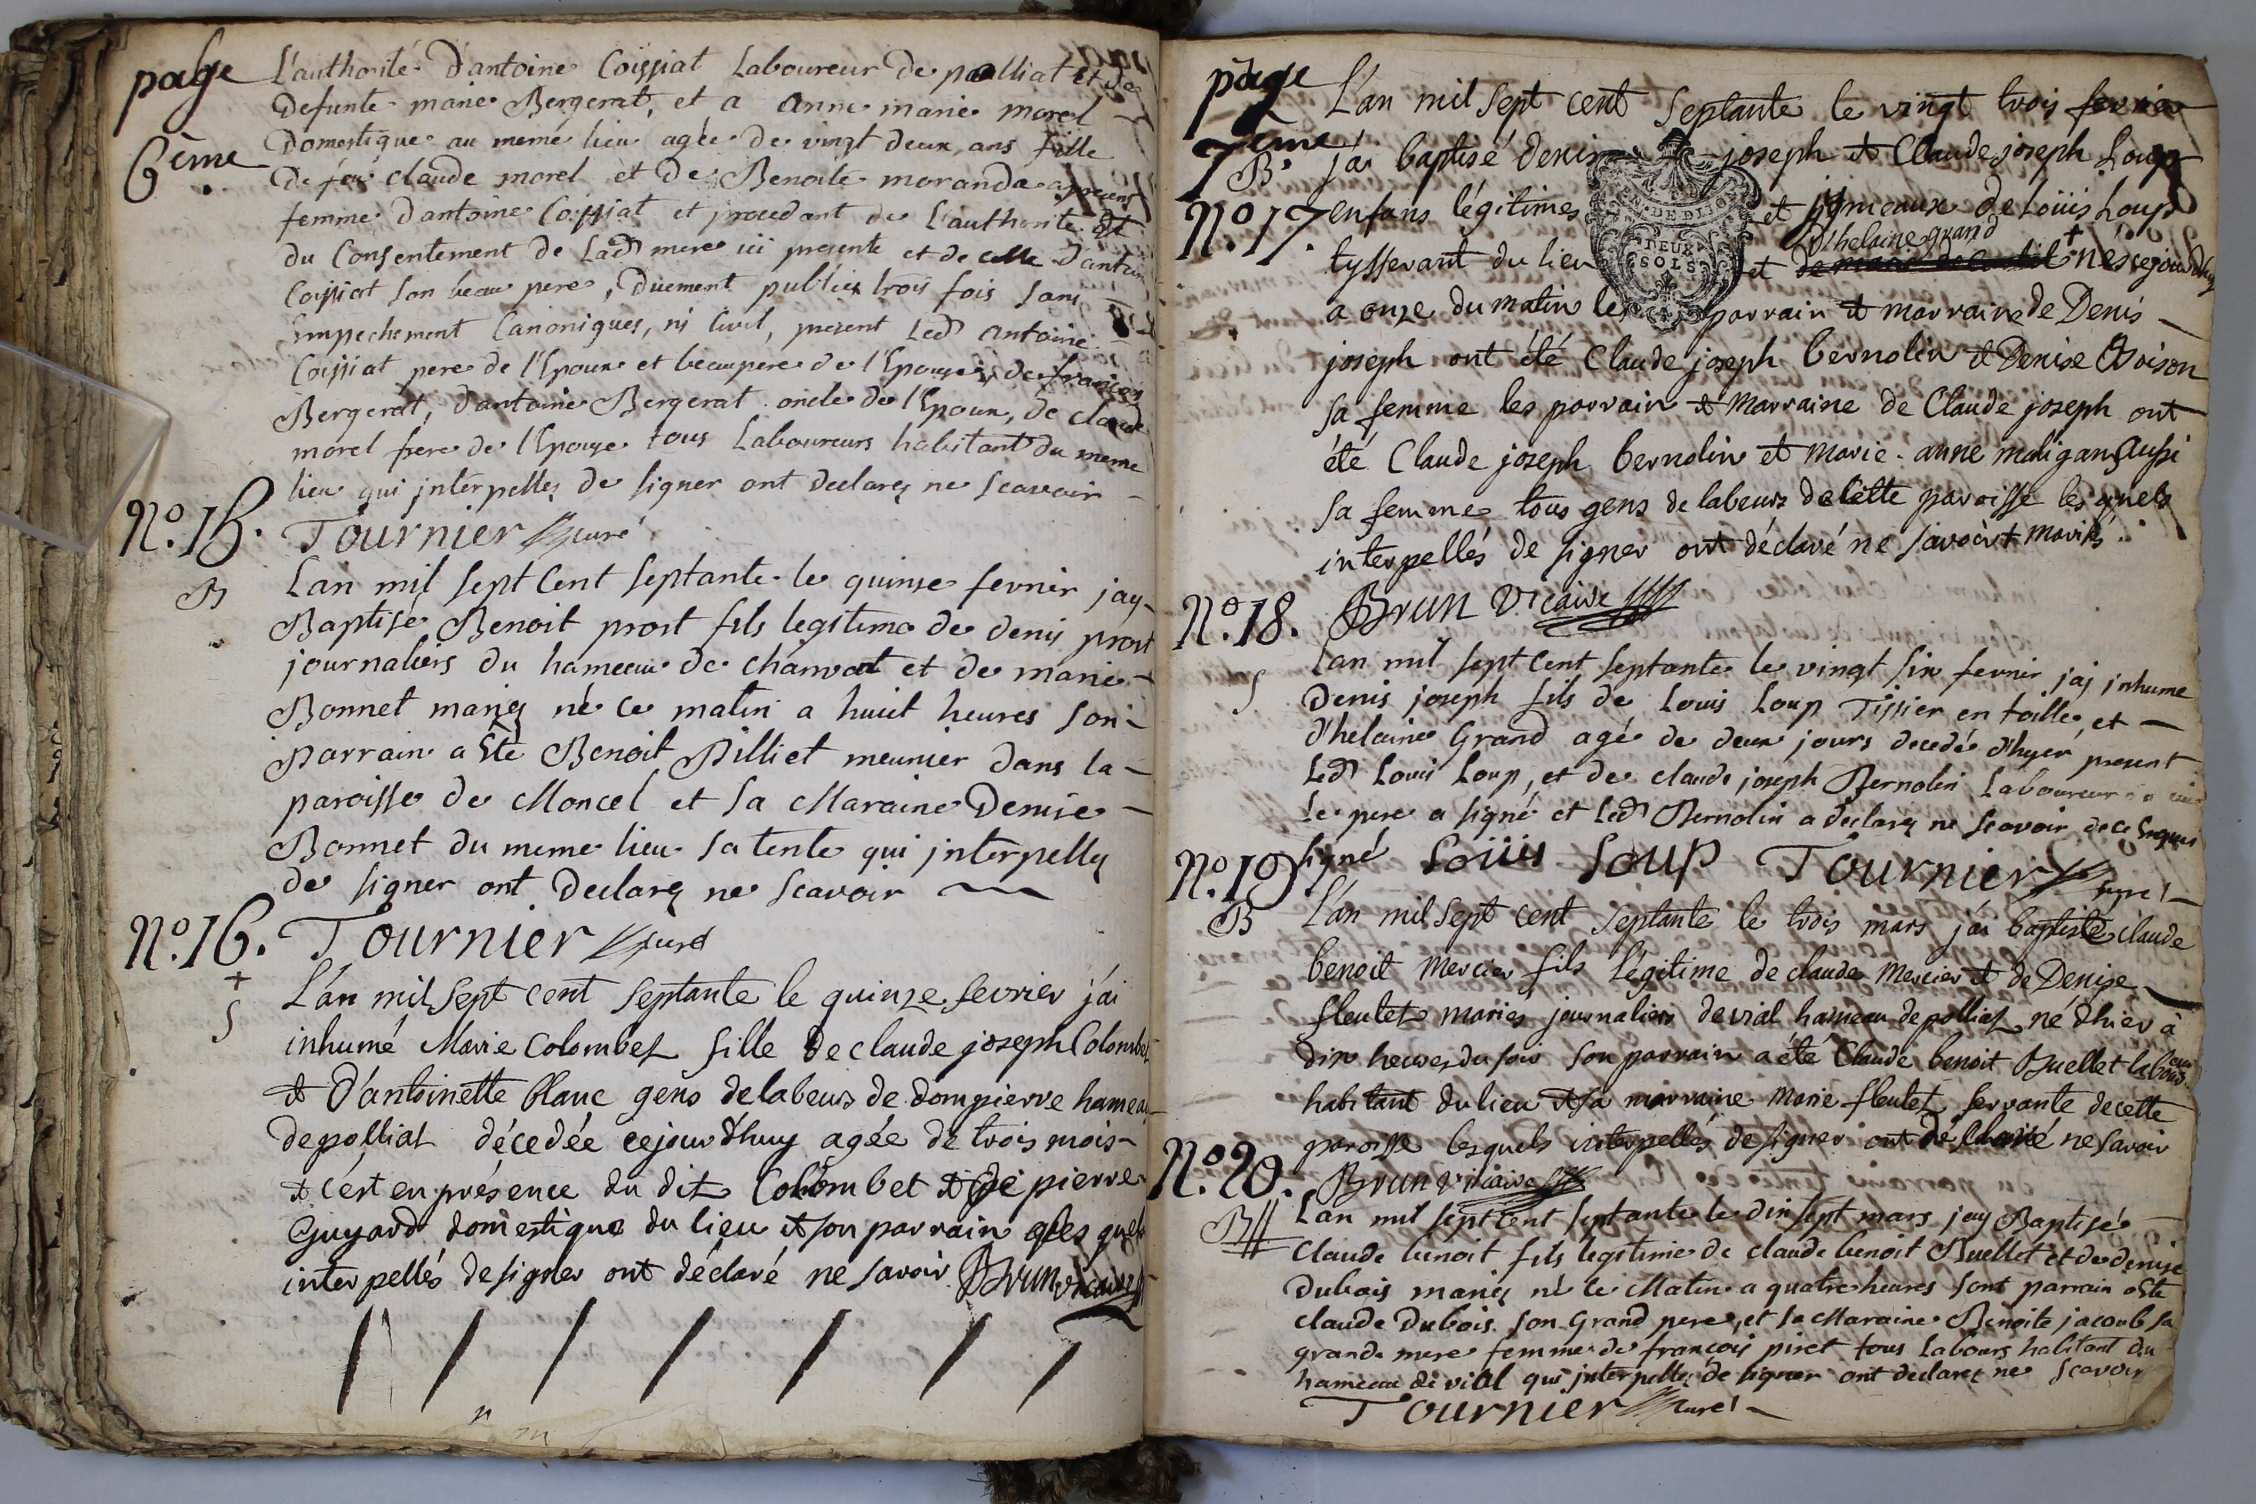 page
6ème
L'authorité d'antoine Coissiat Laboureur de polliat et de
defunte marie Bergerat, et a anne marie morel
Domestique au meme lieu agée de vingt deux ans fille
de feu claude morel et de Benoite moranda a present
femme d'antoine Coissiat et procedant de l'authorité et
du Consentement de Lad mere ici presente et de celle d'antoine
Coissiat son beau pere, Duement publiés trois fois sans
Empechement Canoniques, ni Civil, present Led antoine
Coissiat pere de l'Epoux et beaupere de l'Epouse, de françois
Bergerat, d'antoine Bergerat oncle de l'Epoux, de claude
morel frere de l'Epouse tous Laboureurs habitant du meme
lieu qui interpellez de signer ont declarez ne scavoir
Tournier curé
No. 15.
B
Lan mil sept Cent septante le quinze fevrier jay
Baptisé Benoit prost fils legitime de denis prost
journaliers du hameau de charvat et de marie
Bonnet mariez né ce matin a huit heures son
parrain a Eté Benoit Pilliet meunier dans la
paroisse de Moncel et sa Maraine Denise
Bonnet du meme lieu sa tente qui interpellez
de signer ont declarez ne scavoir
Tournier curé
No. 16.
+
S
L'an mil sept cent septante le quinze fevrier j'ai
inhumé Marie Colombet fille de claude joseph Colombet
et d'antoinette Blanc gens de labeurs de dompierre hameau
de polliat décedée cejourd'huy agée de trois mois
et c'ést en présence du dit Colombet et de pierre
Guyard domestique du lieu et son parrain lesquels
interpellés de signer ont déclaré ne savoir Brun vicaire
page
7ème
B.
No. 17.
L'an mil sept cent septante le vingt trois fevrier
j'ai baptisé denis joseph et Claude joseph Loup
enfans légitimes et jumeaux de Loüis Loup
d'helaine grand
tysserant du lieu et + nés cejourd'huy
a onze du matin les parrain et marraine de Denis
joseph ont été Claude joseph bernolin et Denise Boison
sa femme les parrain et Marraine de Claude joseph ont
été Claude joseph bernolin et marie anne maligand aussi
sa femme tous gens de labeurs de cette paroisse lesquels
interpellés de signer ont déclaré ne savoir + mariés
Brun Vicaire
GN. DE DIJON
DEUX
SOLS
No. 18.
S
Lan mil sept Cent septante le vingt six fevrier jaj inhume
Denis joseph fils de Louis Loup Tissier en toille, et
d'helaine Grand agé de deux jours decedé d'hyer, present
Led Louis Loup, et de claude joseph Bernolin Laboureur
le pere a signé et led Bernolin a declarez ne scavoir de ce Enquis
signé Loüis Loup Tournier curé
No. 19
B
L'an mil sept cent septante le trois mars j'ai baptisé claude
benoit Mercier fils légitime de claude Mercier et de Denise
fleutet mariés journaliers de vial hameau de polliat né d'hier à
dix heures du soir son parrain a été Claude benoit Buellet laboureur
habitant du lieu et sa marraine Marie fleutet servante de cette
paroisse lesquels interpellés de signer ont déclaré ne savoir
Brun vicaire
No. 20.
B
Lan mil sept Cent septante le dix sept mars jay Baptisé
Claude benoit fils legitime de claude benoit Buellet et de denise
Dubois mariez né le Matin a quatre heures sont parrain a Eté
claude Dubois son Grand pere, et sa Maraine Benoite jacoub sa
grande mere femme de françois piret tous Labours habitant du
hameau de vial qui interpellez de signer ont declarez ne scavoir
Tournier curé